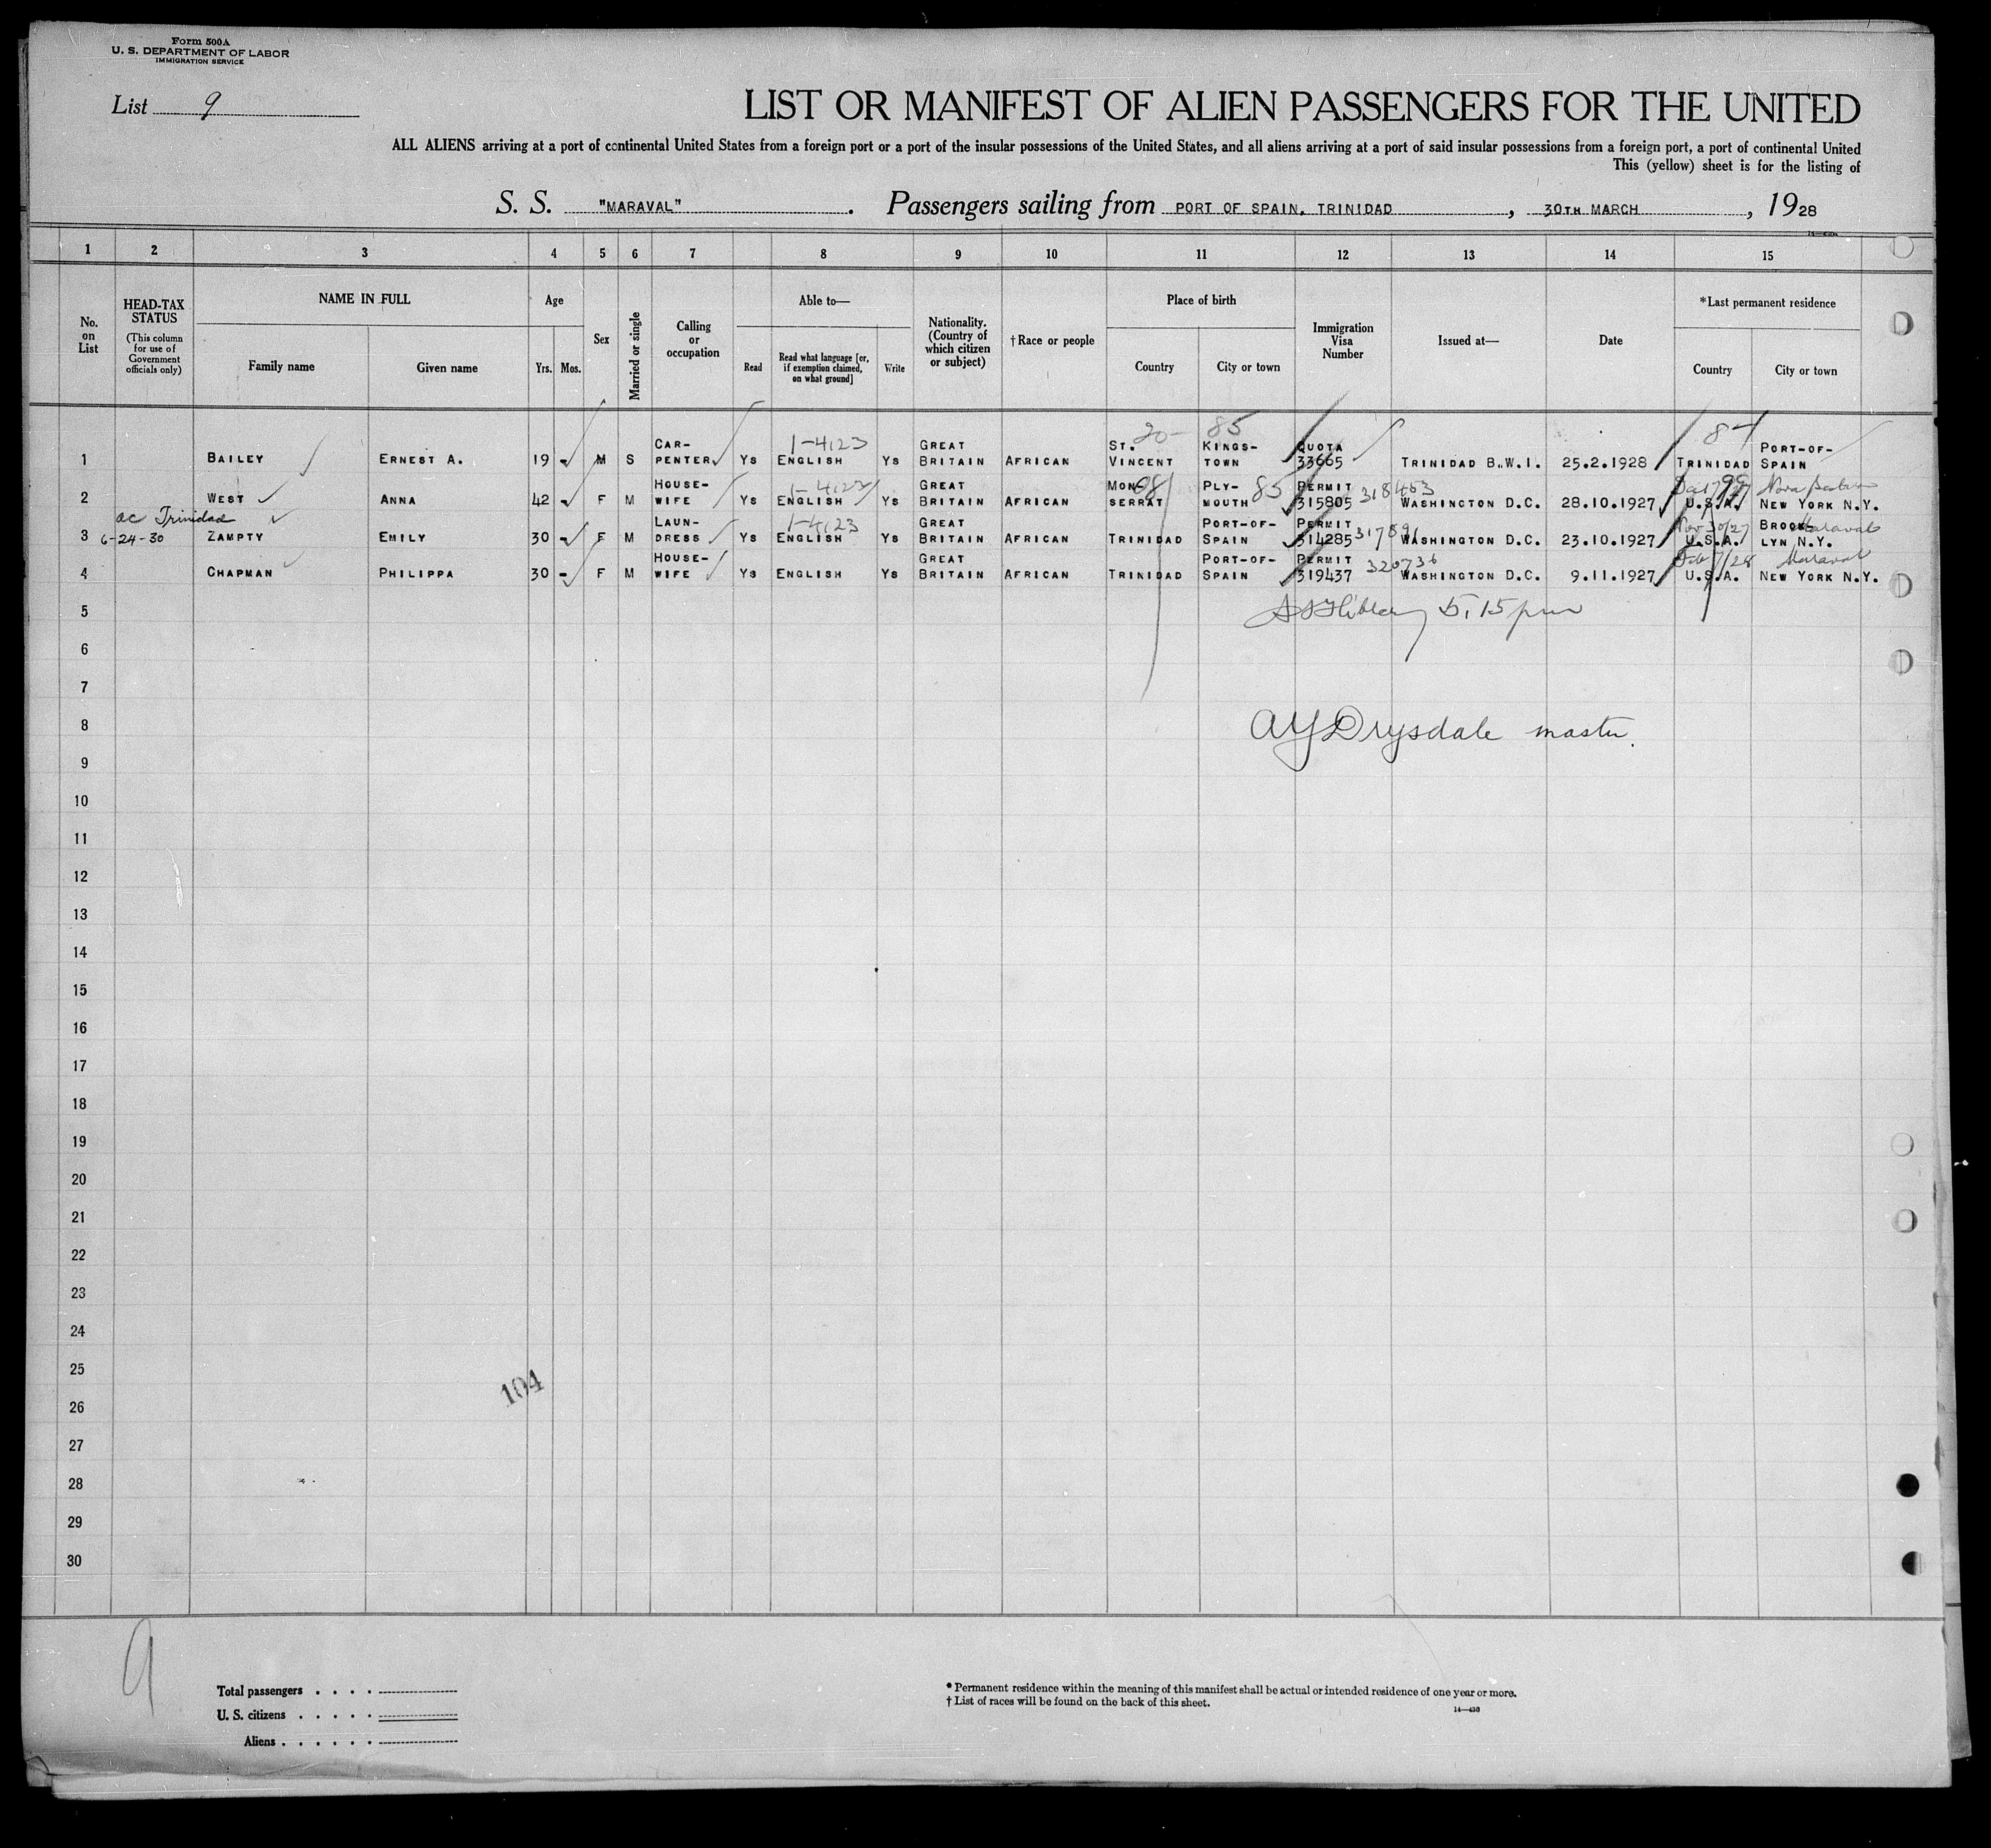 Form 500A
U. S. DEPARTMENT OF LABOR
IMMIGRATION SERVICE
List 9
LIST OR MANIFEST OF ALIEN PASSENGERS FOR THE UNITED
ALL ALIENS arriving at a port of continental United States from a foreign port or a port of the insular possessions of the United States, and all aliens arriving at a port of said insular possessions from a foreign port, a port of continental United
This (yellow) sheet is for the listing of
S. S. "MARAVAL". Passengers sailing from PORT OF SPAIN, TRINIDAD, 30TH MARCH, 1928
1 2 3 4 5 6 7 8 9 10 11 12 13 14 15
No. on List
HEAD-TAX STATUS
(This column for use of Government officials only)
NAME IN FULL
Family name Given name
Age
Yrs. Mos.
Sex
Married or single
Calling or occupation
Able to—
Read
Read what language [or, if exemption claimed, on what ground]
Write
Nationality. (Country of which citizen or subject)
†Race or people
Place of birth
Country City or town
Immigration Visa Number
Issued at—
Date
*Last permanent residence
Country City or town
20- 85 84
1 BAILEY ERNEST A. 19 - M S CAR-PENTER YS 1-4123 ENGLISH YS GREAT BRITAIN AFRICAN ST. VINCENT KINGS-TOWN QUOTA 33665 TRINIDAD B.W.I. 25.2.1928 TRINIDAD PORT-OF-SPAIN
2 WEST ANNA 42 - F M HOUSE-WIFE YS 1-4123 ENGLISH YS GREAT BRITAIN AFRICAN MON-SERRAT PLY-MOUTH 85 PERMIT 315805 318463 WASHINGTON D.C. 28.10.1927 U.S.A. NEW YORK N.Y.
ac Trinidad
6-24-30
3 ZAMPTY EMILY 30 - F M LAUN-DRESS YS 1-4123 ENGLISH YS GREAT BRITAIN AFRICAN TRINIDAD PORT-OF-SPAIN PERMIT 314285 317891 WASHINGTON D.C. 23.10.1927 Nov 30/27 U.S.A. BROOK-LYN N.Y. Maraval
4 CHAPMAN PHILIPPA 30 - F M HOUSE-WIFE YS ENGLISH YS GREAT BRITAIN AFRICAN TRINIDAD PORT-OF-SPAIN PERMIT 319437 320736 WASHINGTON D.C. 9.11.1927 Feb 7/28 U.S.A. Maraval NEW YORK N.Y.
5 5,15 pm
6
7
8 AY Drysdale master.
9
10
11
12
13
14
15
16
17
18
19
20
21
22
23
24
25
104
26
27
28
29
30
9
Total passengers . . . .
U. S. citizens . . . . .
Aliens . . . . . .
* Permanent residence within the meaning of this manifest shall be actual or intended residence of one year or more.
† List of races will be found on the back of this sheet.
14—430